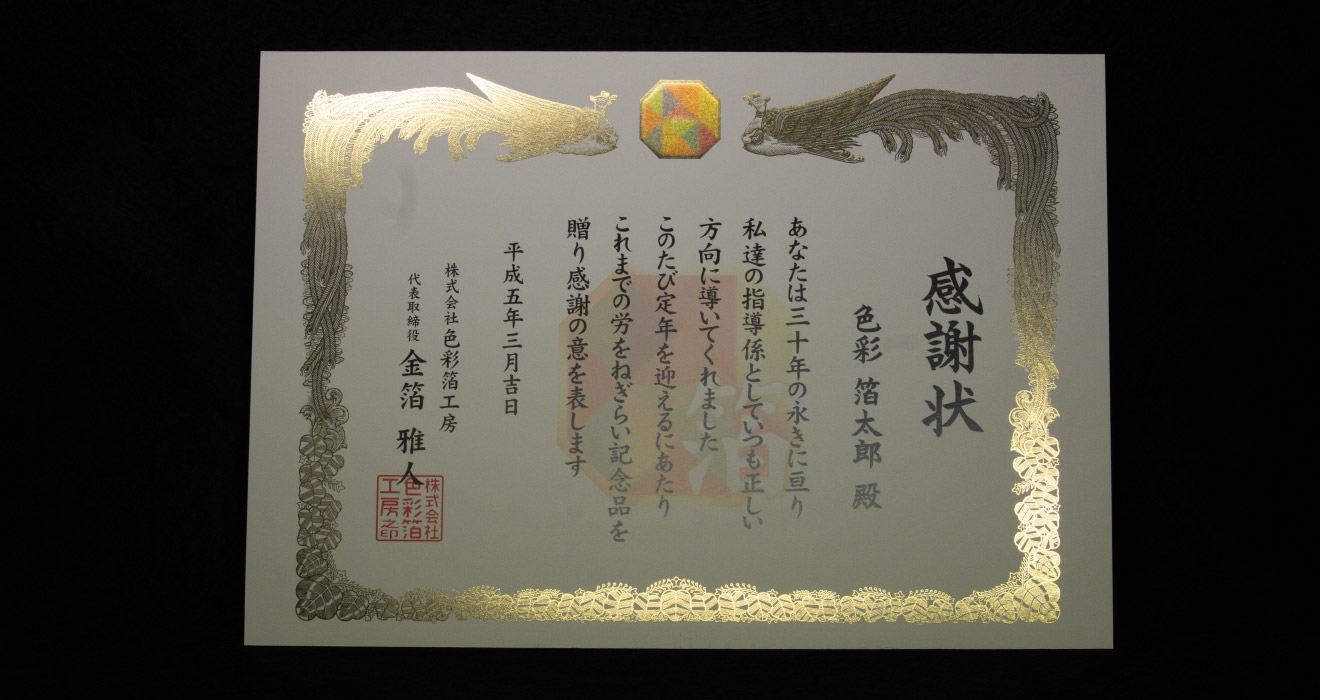 感謝状
色彩 箔太郎 殿
あなたは三十年の永きに亘り
私達の指導係としていつも正しい
方向に導いてくれました
このたび定年を迎えるにあたり
これまでの労をねぎらい記念品を
贈り感謝の意を表します
平成五年三月吉日
株式会社色彩箔工房
代表取締役 金箔 雅人
株式会社
色彩箔
工房之印
箔